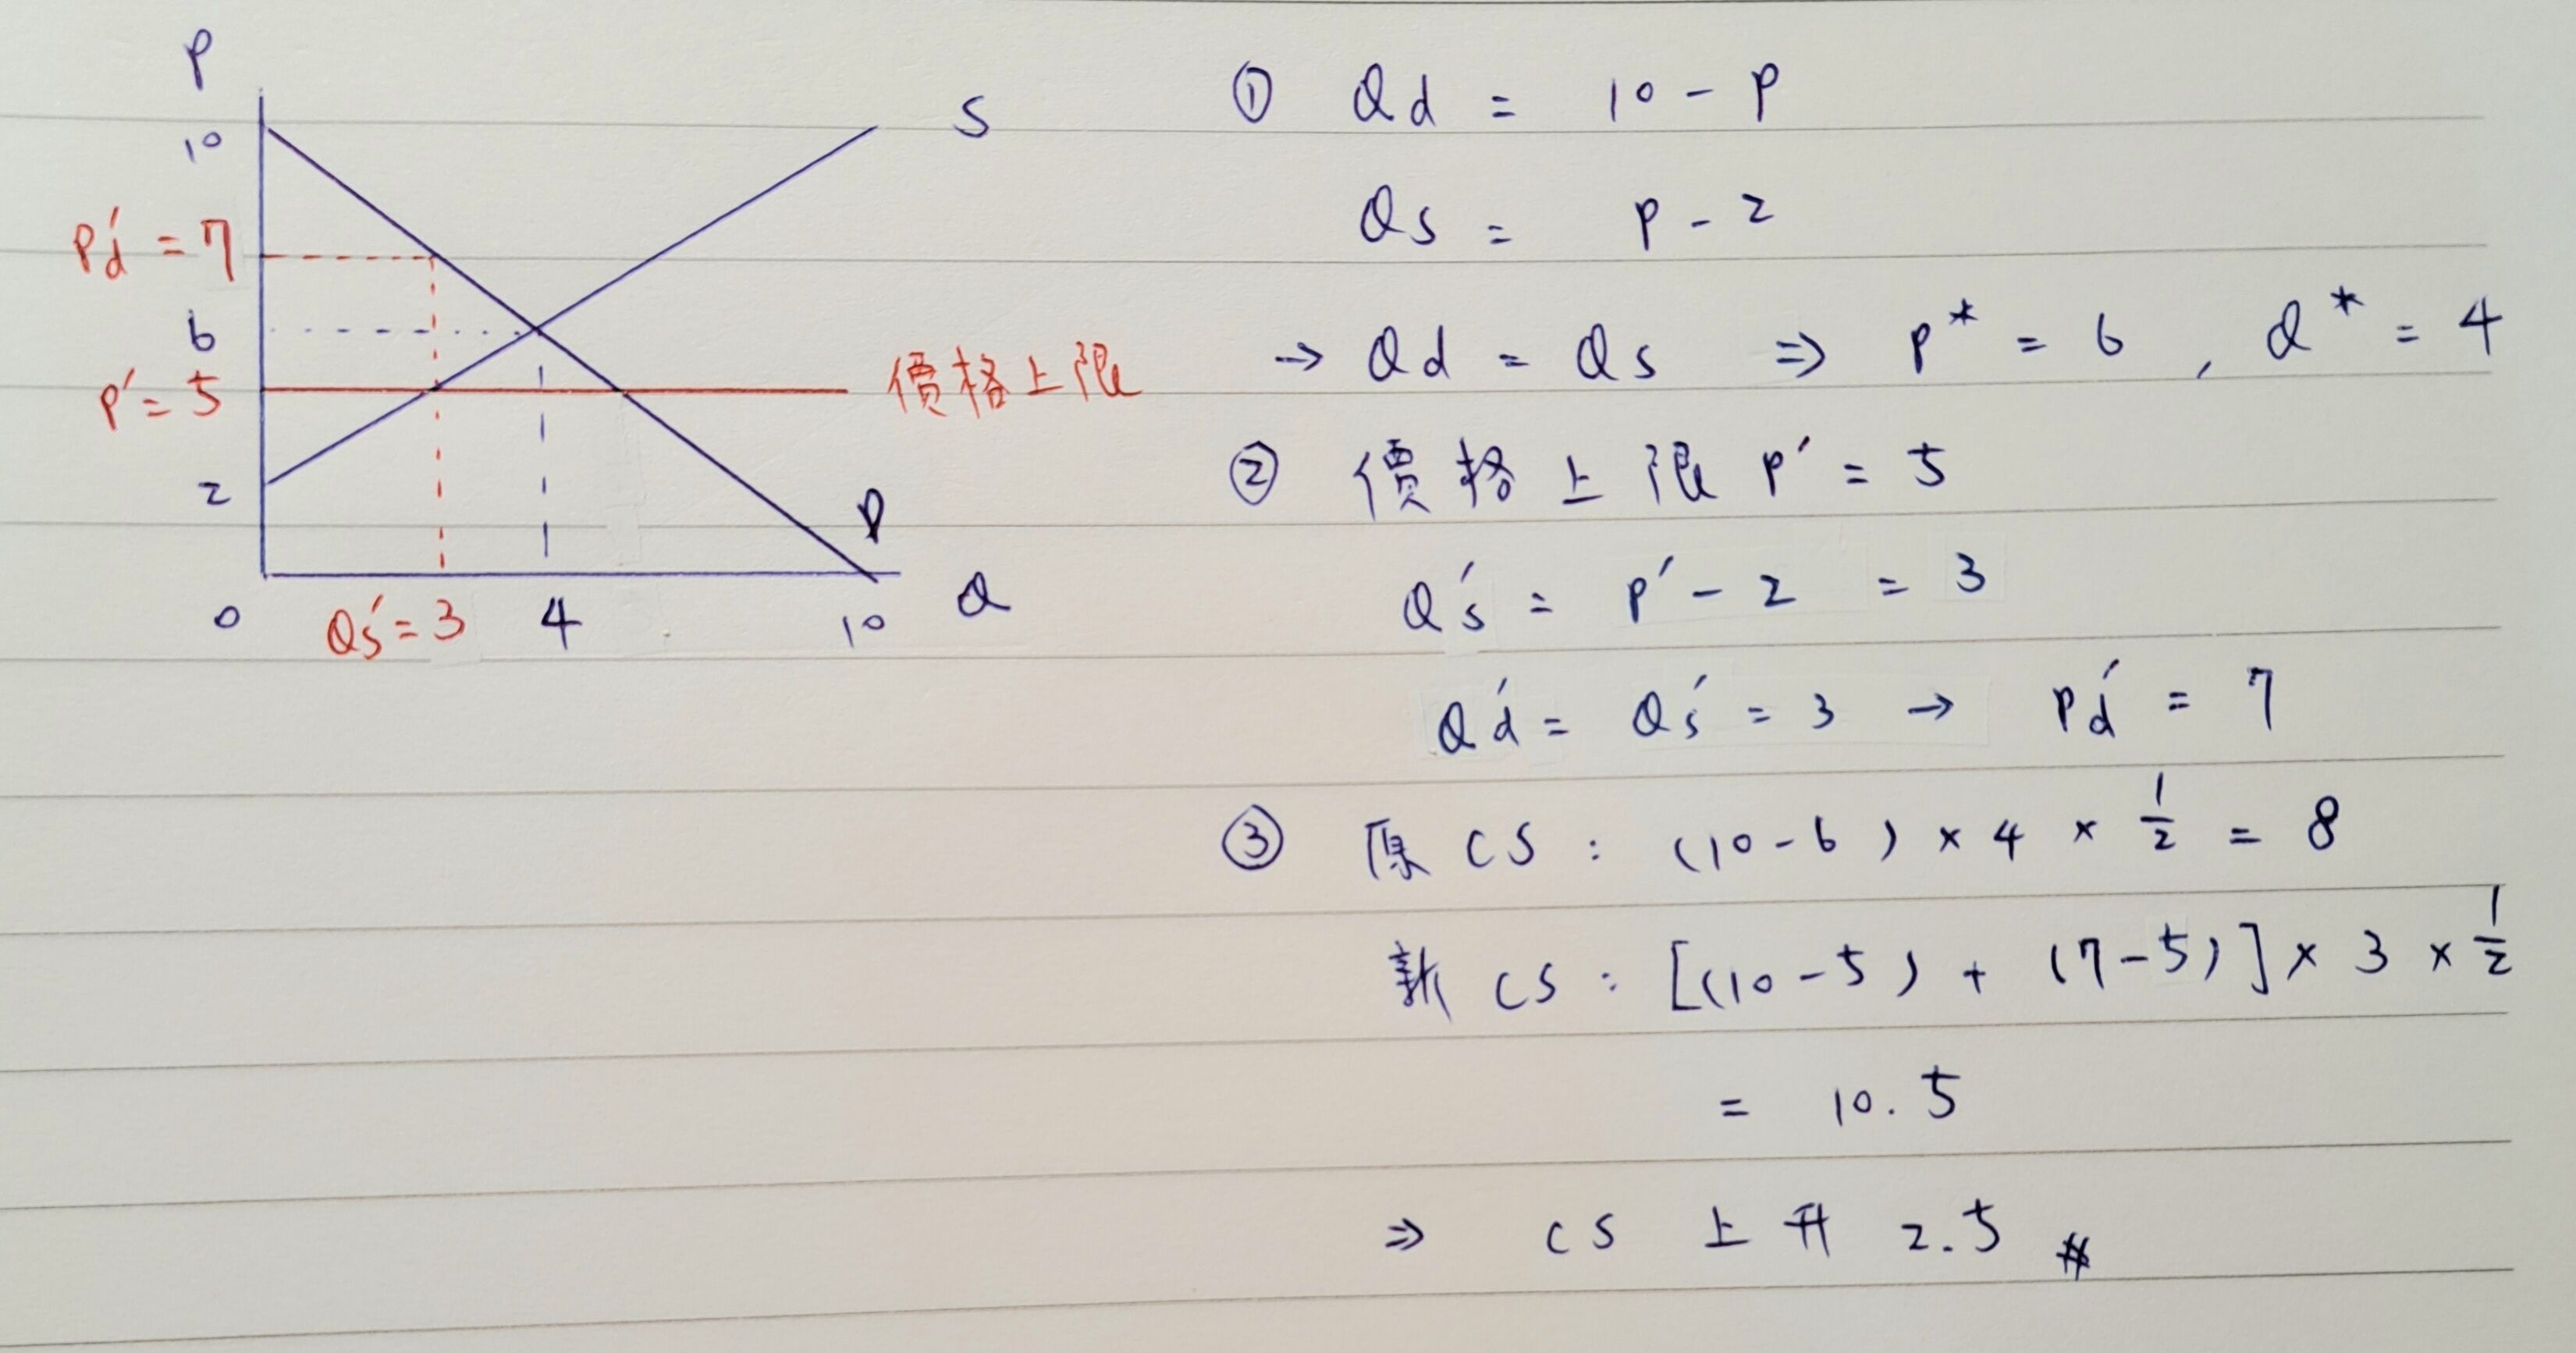 P
10
Pd' = 7
6
P' = 5
2
0
Qs' = 3
4
10
Q
S
價格上限
D
① Qd = 10 - P
Qs = P - 2
→ Qd = Qs ⇒ P* = 6 , Q* = 4
② 價格上限 P' = 5
Qs' = P' - 2 = 3
Qd' = Qs' = 3 → Pd' = 7
③ 原 CS : (10 - 6) × 4 × 1/2 = 8
新 CS : [(10 - 5) + (7 - 5)] × 3 × 1/2
= 10.5
⇒ CS 上升 2.5 #